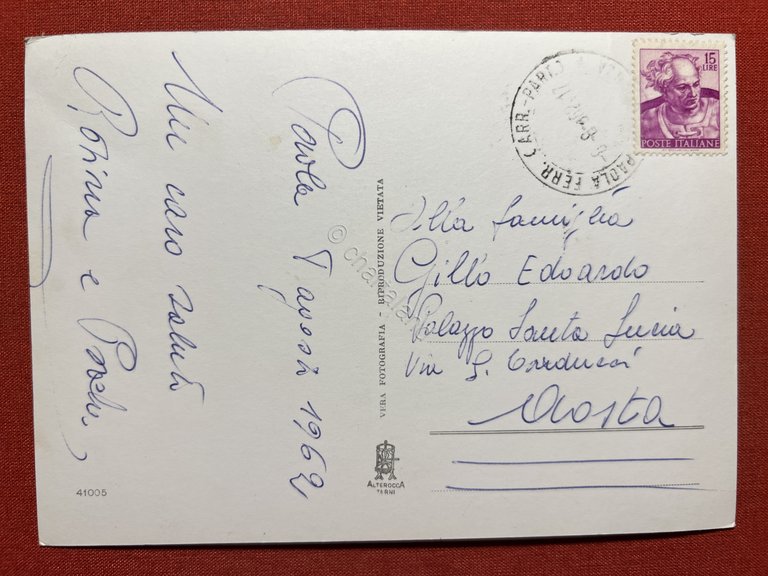 Un caro saluto
Rosina e
Paola 7 agosto 1962
VERA FOTOGRAFIA - RIPRODUZIONE VIETATA
ALTEROCCA
TERNI
41005
15
LIRE
POSTE ITALIANE
PAOLA FERR. (ARR.-PART.)
Alla famiglia
Gillo Edoardo
Palazzo Santa Lucia
Via G. Carducci
Aosta